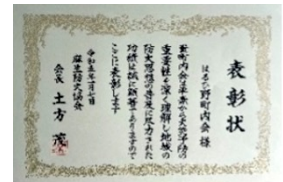 表彰状
はるひ野町内会 様
貴町内会は平素から火災予防の
重要性を深く理解し地域の
防火思想の普及に尽力された
功績は誠に顕著でありますので
ここに表彰します
令和五年一月七日
麻生防火協会
会長 土方 茂